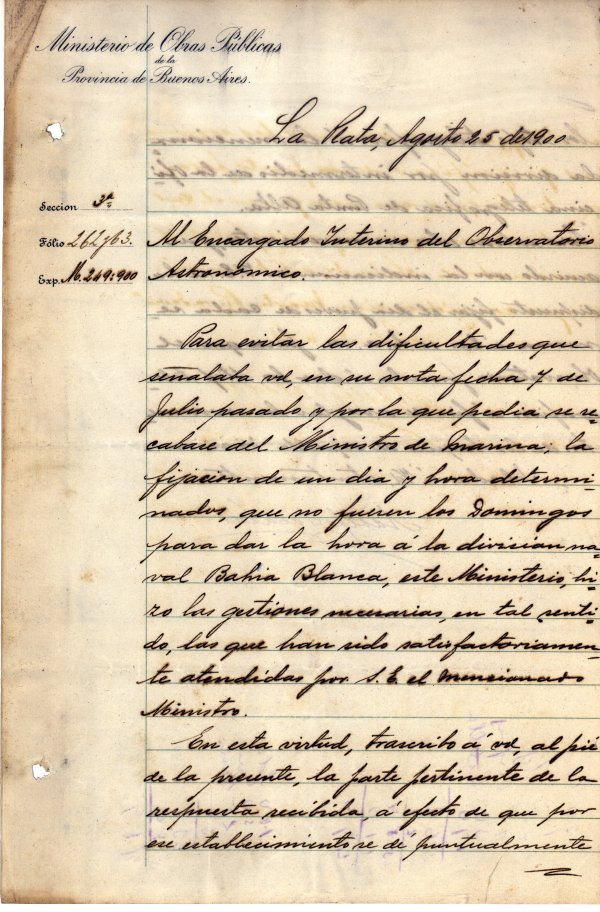 Ministerio de Obras Públicas
de la
Provincia de Buenos Aires.
La Plata, Agosto 25 de 1900
Seccion 3ª
Fólio 262/63.
Exp. M. 249:900
Al Encargado Interino del Observatorio
Astronómico.
Para evitar las dificultades que
señalaba vd, en su nota fecha 7 de
Julio pasado y por la que pedia se re-
cabase del Ministro de Marina, la
fijacion de un dia y hora determi-
nados, que no fueren los Domingos
para dar la hora á la division na-
val Bahia Blanca, este Ministerio, hi-
zo las gestiones necesarias, en tal senti-
do, las que han sido satisfactoriamen-
te atendidas por S. E. el mencionado
Ministro.
En esta virtud, trascribo á vd, al pié
de la presente, la parte pertinente de la
respuesta recibida, á efecto de que por
ese establecimiento se dé puntualmente